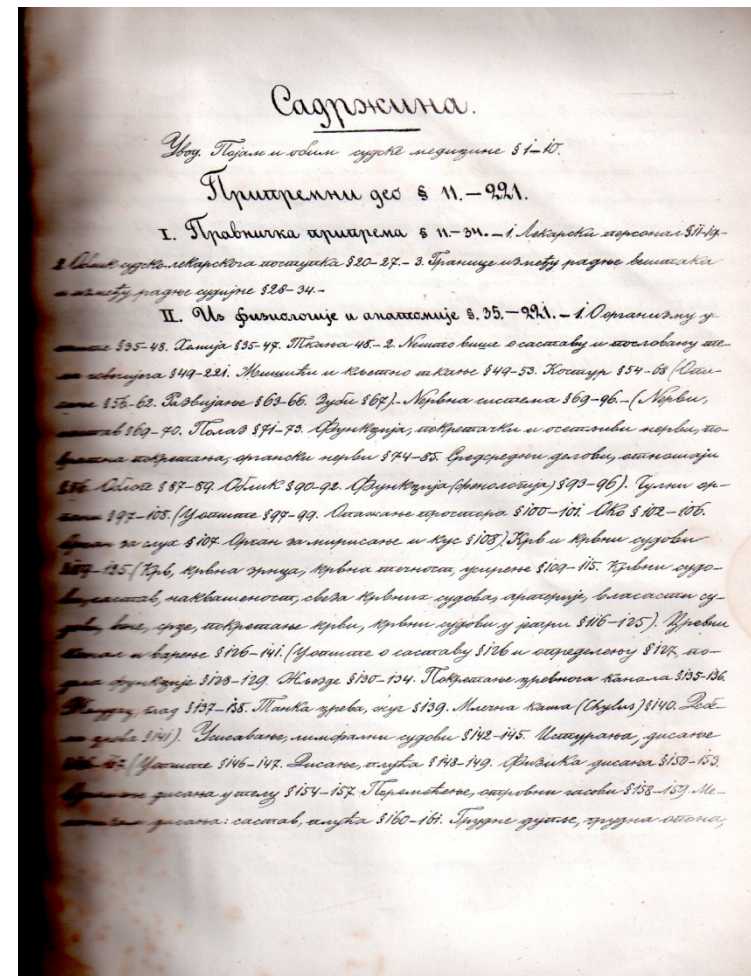 Садржина.
Увод. Појам и обим судске медицине § 1–10.
Припремни део § 11.–221.
I. Правничка припрема § 11–34.–1. Лекарски персонал § 11–19–
2. Облик судско-лекарскога поступка § 20–27.– 3. Границе између радње вештака
и између радње судијне § 28–34.–
II. Из физиологије и анатомије §. 35.–221.–1. О организму у-
§ 35–48. Хемија § 35–47. Ткања 48.–2. Нешто више о саставу и пословању те-
човечијега § 49–221. Мишићи и клетно ткање § 49–53. Костур § 54–68 (Опи-
§ 56–62. Развијање § 63–66. Зуби § 67). Нервна система § 69–96.–(Нерви,
састав § 69–70. Полаз § 71–73. Функција, покретачки и осетљиви нерви, по-
покретања, органски нерви § 74–85. Средсредни делови, отношаји
§ 86. Облоге § 87–89. Облик § 90–92. Функција (френологија) § 93–96). Чулни ор-
§ 97–108. (У опште § 97–99. Опажање простора § 100–101. Око § 102–106.
Орган за слух § 107. Орган за мирисање и кус § 108). Крв и крвни судови
109–125 (Крв, крвна зрнца, крвна течност, усирење § 109–115. Крвни судо-
ви, састав, наквашеност, свеза крвних судова, артерије, власасти су-
дови, вене, срце, покретање крви, крвни судови у јетри § 116–125). Цревни
канал и варење § 126–141. (У опште о саставу § 126 и определењу § 127, по-
функције § 128–129. Жљезде § 130–134. Покретање цревнога канала § 135–136.
Желудац, глад § 137–138. Танка црева, жуч § 139. Млечна каша (Chylus) § 140. Дебе-
ла црева § 141). Усисавање, лимфални судови § 142–145. Истурања, дисање
(У опште § 146–147. Дисање, плућа § 148–149. Физика дисања § 150–153.
дисања у телу § 154–157. Перемећење, отровни гасови § 158–159. Ме-
дисања: састав, плућа § 160–161. Грудне дупље, грудна опона,